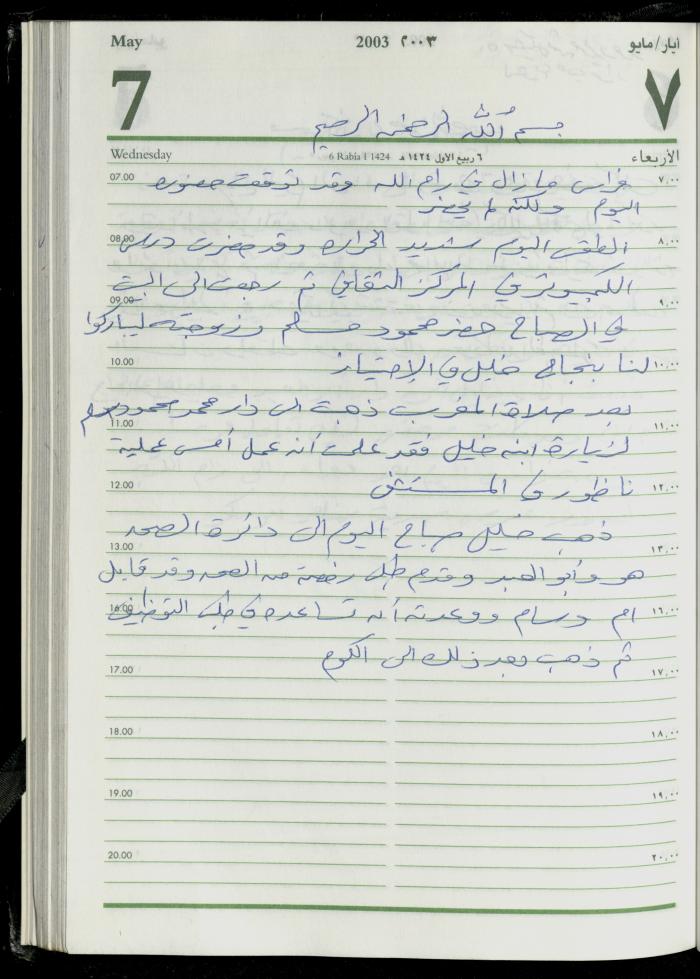 May 2003 ٢٠٠٣ ايار/مايو
7 ٧
بسم الله الرحمن الرحيم
Wednesday 6 Rabia I 1424 ٦ ربيع الاول ١٤٢٤ هـ الأربعاء
07.00 فراس مازال في رام الله وقد توقعت حضوره ٧,٠٠
اليوم ولكنه لم يحضر
08.00 الطقس اليوم شديد الحرارة وقد حضرت درس ٨,٠٠
الكمبيوتر في المركز الثقافي ثم رجعت الى البيت
09.00 ٩,٠٠
في الصباح حضر محمود مسلم وزوجته ليباركوا
10.00 لنا بنجاح خليل في الإمتياز ١٠,٠٠
بعد صلاة المغرب ذهبت الى دار محمد محمود
11.00 ١١,٠٠
لزيارة ابنه خليل فقد علمت أنه عمل أمس عملية
12.00 ناظور في المستشفى ١٢,٠٠
ذهب خليل صباح اليوم الى دائرة الصحه
13.00 ١٣,٠٠
هو وأبو العبد وقدم طلب رخصة من الصحه وقد قابل
16.00 ام وسام ووعدته أن تساعده في طلب التوظيف ١٦,٠٠
ثم ذهب بعد ذلك الى الكوم
17.00 ١٧,٠٠
18.00 ١٨,٠٠
19.00 ١٩,٠٠
20.00 ٢٠,٠٠